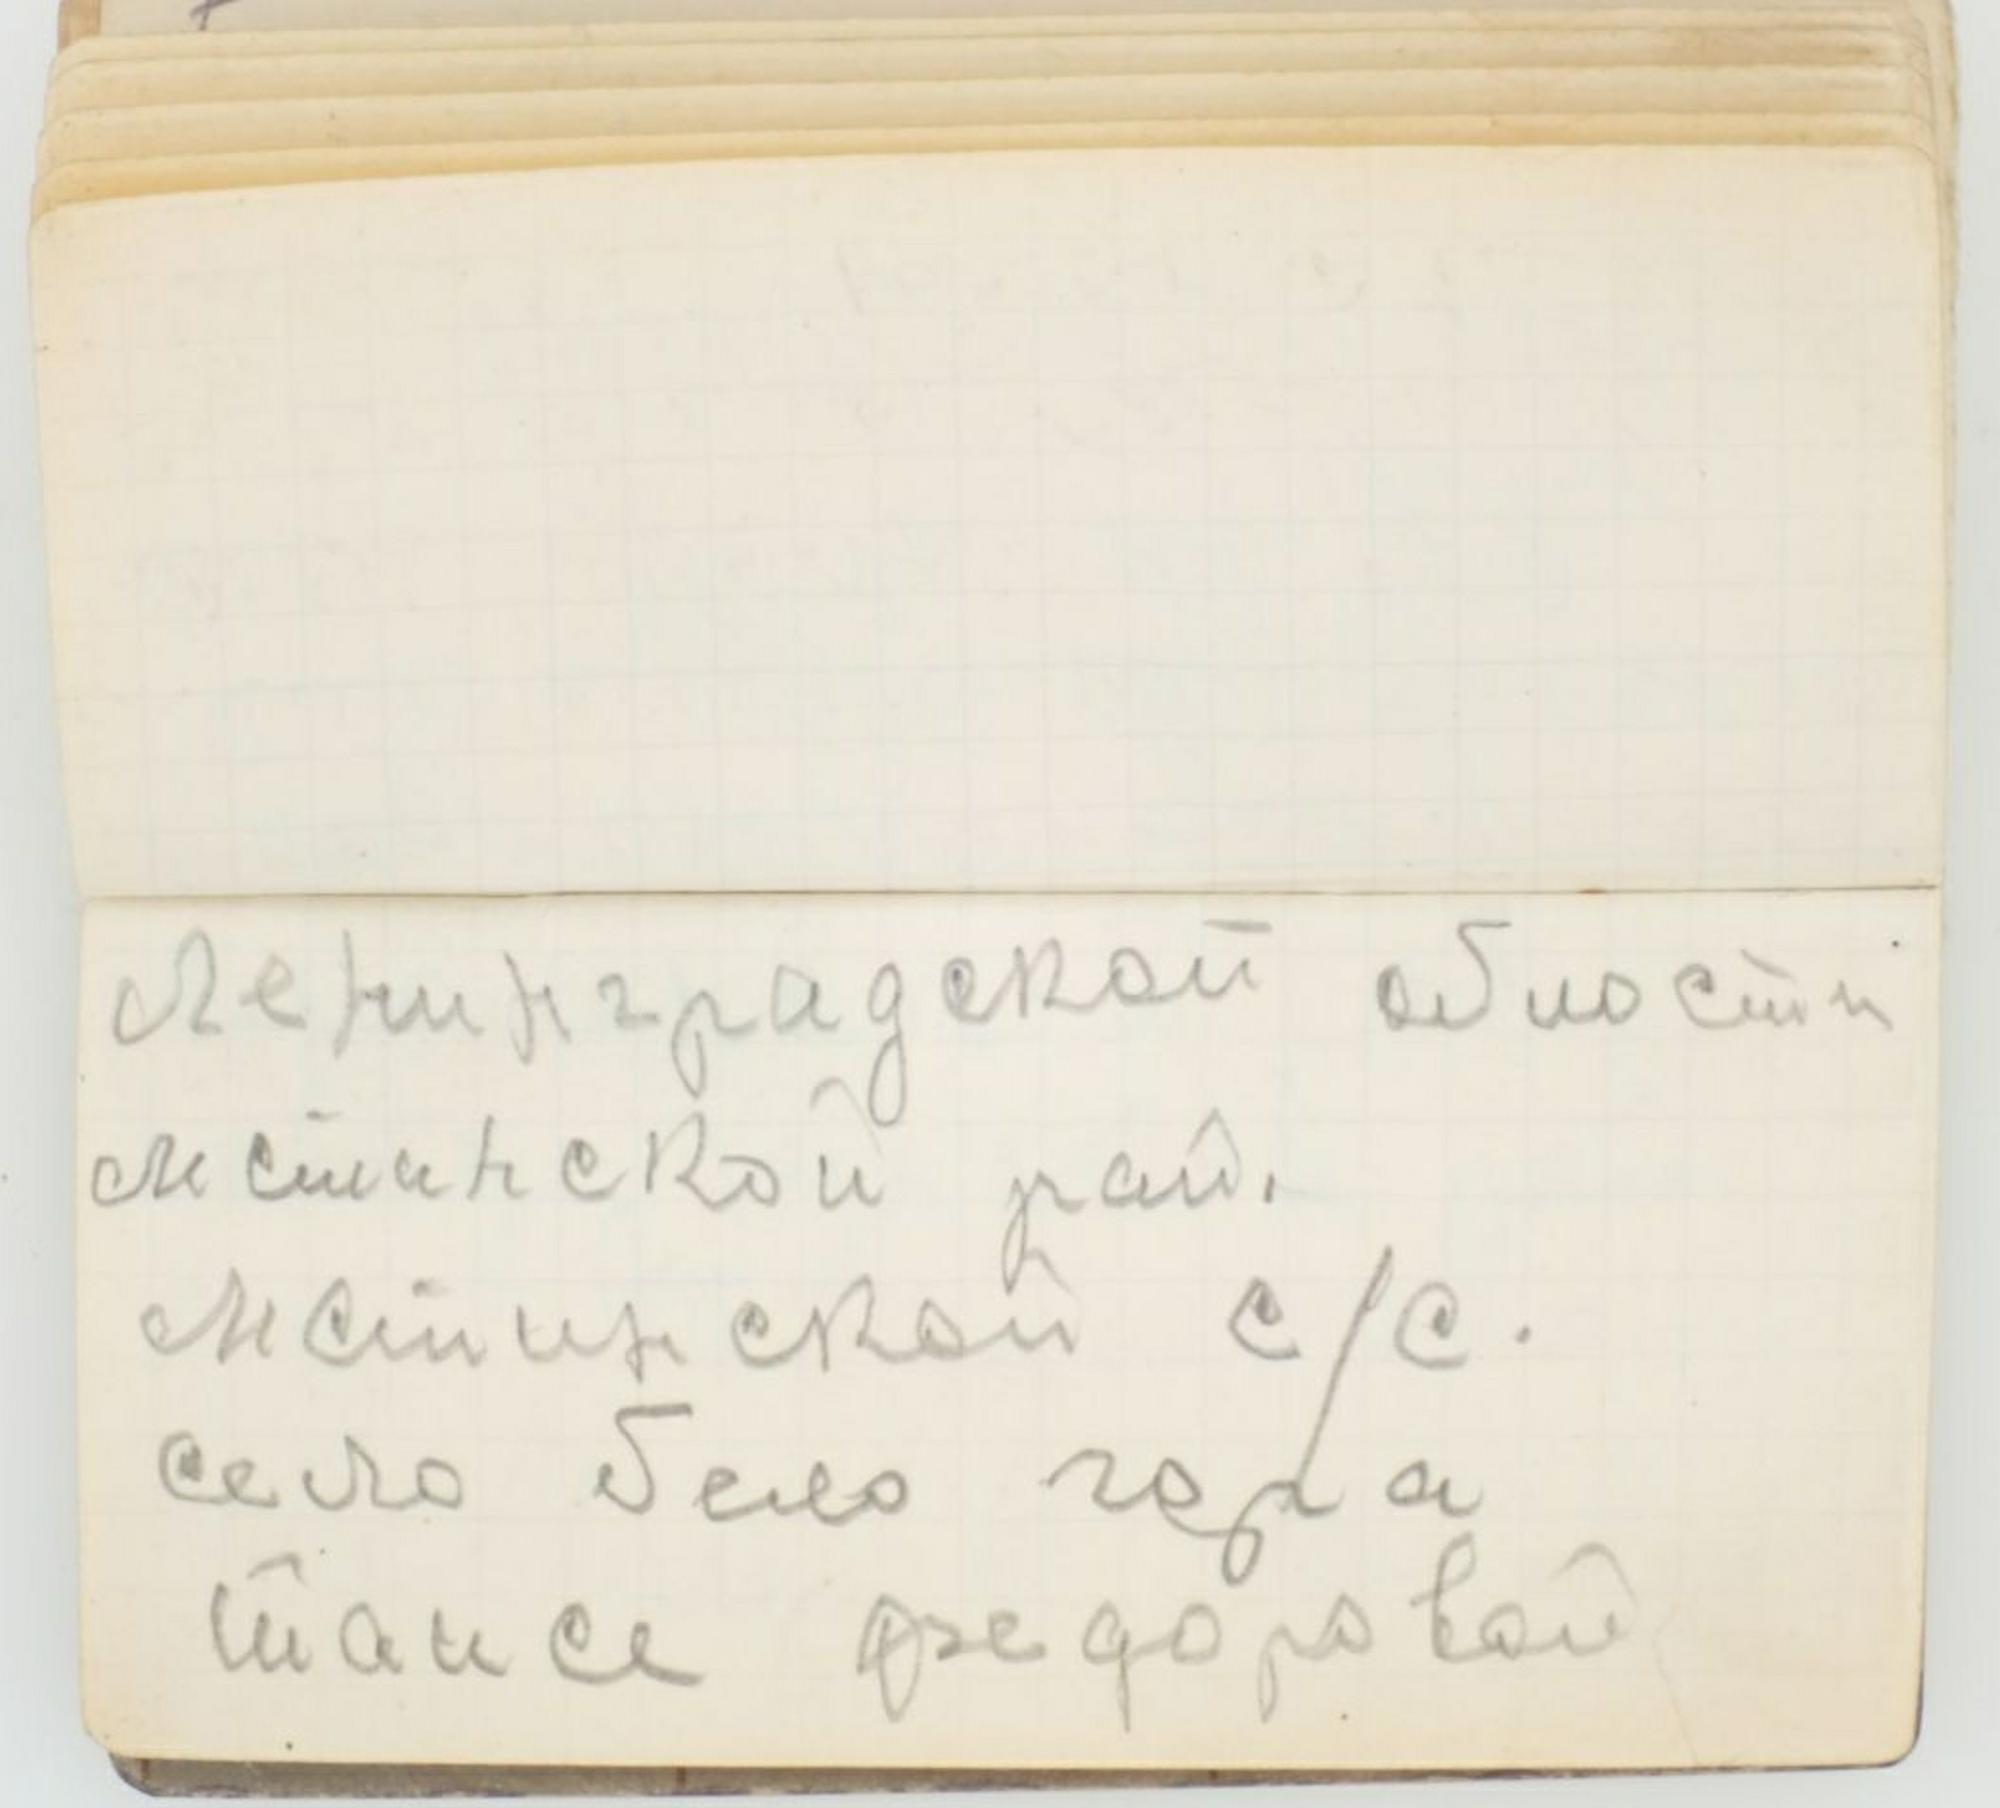 Ленинградской области
Мстинской рай.
Мстинской с/с.
село бело гора
Таисе федоровой